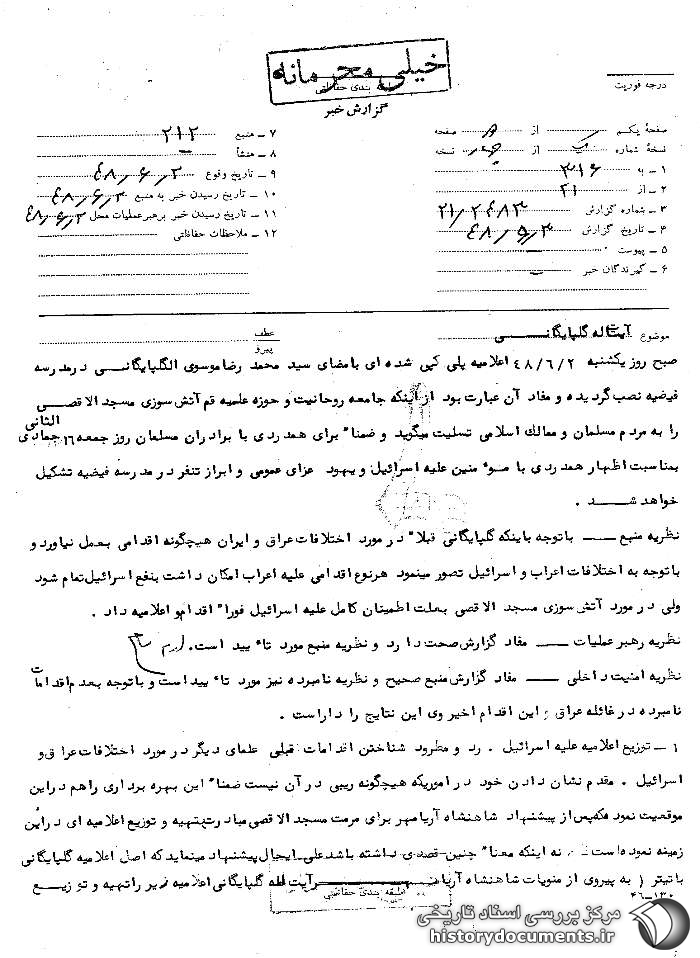 خیلی محرمانه
طبقه بندی حفاظتی
گزارش خبر
درجه فوریت
صفحهٔ یکم از صفحه
نسخهٔ شماره از نسخه
۱ ـ به ۳۱۶
۲ ـ از ۲۱
۳ ـ شماره گزارش ۲۱/۲۶۸۳
۴ ـ تاریخ گزارش ۴۸/۵/۳
۵ ـ پیوست
۶ ـ گیرندگان خبر
۷ ـ منبع ۲۱۲
۸ ـ منشأ
۹ ـ تاریخ وقوع ۴۸/۶/۲
۱۰ ـ تاریخ رسیدن خبر به منبع ۴۸/۶/۲
۱۱ ـ تاریخ رسیدن خبر برهبر عملیات محل ۴۸/۶/۲
۱۲ ـ ملاحظات حفاظتی
موضوع آیت اله گلپایگانی
عطف
پیرو
صبح روز یکشنبه ۴۸/۶/۲ اعلامیه پلی کپی شده ای بامضای سید محمد رضا موسوی الگلپایگانی در مدرسه
فیضیه نصب گردیده و مفاد آن عبارت بود از اینکه جامعه روحانیت و حوزه علمیه قم آتش سوزی مسجد الاقصی
را به مردم مسلمان و ممالك اسلامی تسلیت میگوید و ضمنا" برای همدردی با برادران مسلمان روز جمعه ۱۶ جمادی الثانی
بمناسبت اظهار همدردی با مومنین علیه اسرائیل و یهود عزای عمومی و ابراز تنفر در مدرسه فیضیه تشکیل
خواهد شد .
نظریه منبع ــ باتوجه باینکه گلپایگانی قبلا" در مورد اختلافات عراق و ایران هیچگونه اقدامی بعمل نیاورد و
باتوجه به اختلافات اعراب و اسرائیل تصور مینمود هر نوع اقدامی علیه اعراب امکان داشت بنفع اسرائیل تمام شود
ولی در مورد آتش سوزی مسجد الاقصی بعلت اطمینان کامل علیه اسرائیل فورا" اقدام و اعلامیه داد .
نظریه رهبر عملیات ــ مفاد گزارش صحت دارد و نظریه منبع مورد تائید است.
نظریه امنیت داخلی ــ مفاد گزارش منبع صحیح و نظریه نامبرده نیز مورد تائید است و باتوجه بعدم اقدامات
نامبرده در غائله عراق و این اقدام اخیر وی این نتایج را داراست .
۱ ـ توزیع اعلامیه علیه اسرائیل . رد و مطرود شناختن اقدامات قبلی علمای دیگر در مورد اختلافات عراق و
اسرائیل . مقدم نشان دادن خود در اموریکه هیچگونه ریبی در آن نیست ضمنا" این بهره برداری را هم در این
موقعیت نمود که پس از پیشنهاد شاهنشاه آریامهر برای مرمت مسجد الاقصی مبادرت بتهیه و توزیع اعلامیه ای در این
زمینه نموده است نه اینکه معنا" چنین قصدی داشته باشد علی ایحال پیشنهاد مینماید که اصل اعلامیه گلپایگانی
با تیتر ( به پیروی از منویات شاهنشاه آریامهر آیت اله گلپایگانی اعلامیه زیر را تهیه و توزیع
طبقه بندی حفاظتی
۴۶-۱۳۰
مرکز بررسی اسناد تاریخی
historydocuments.ir